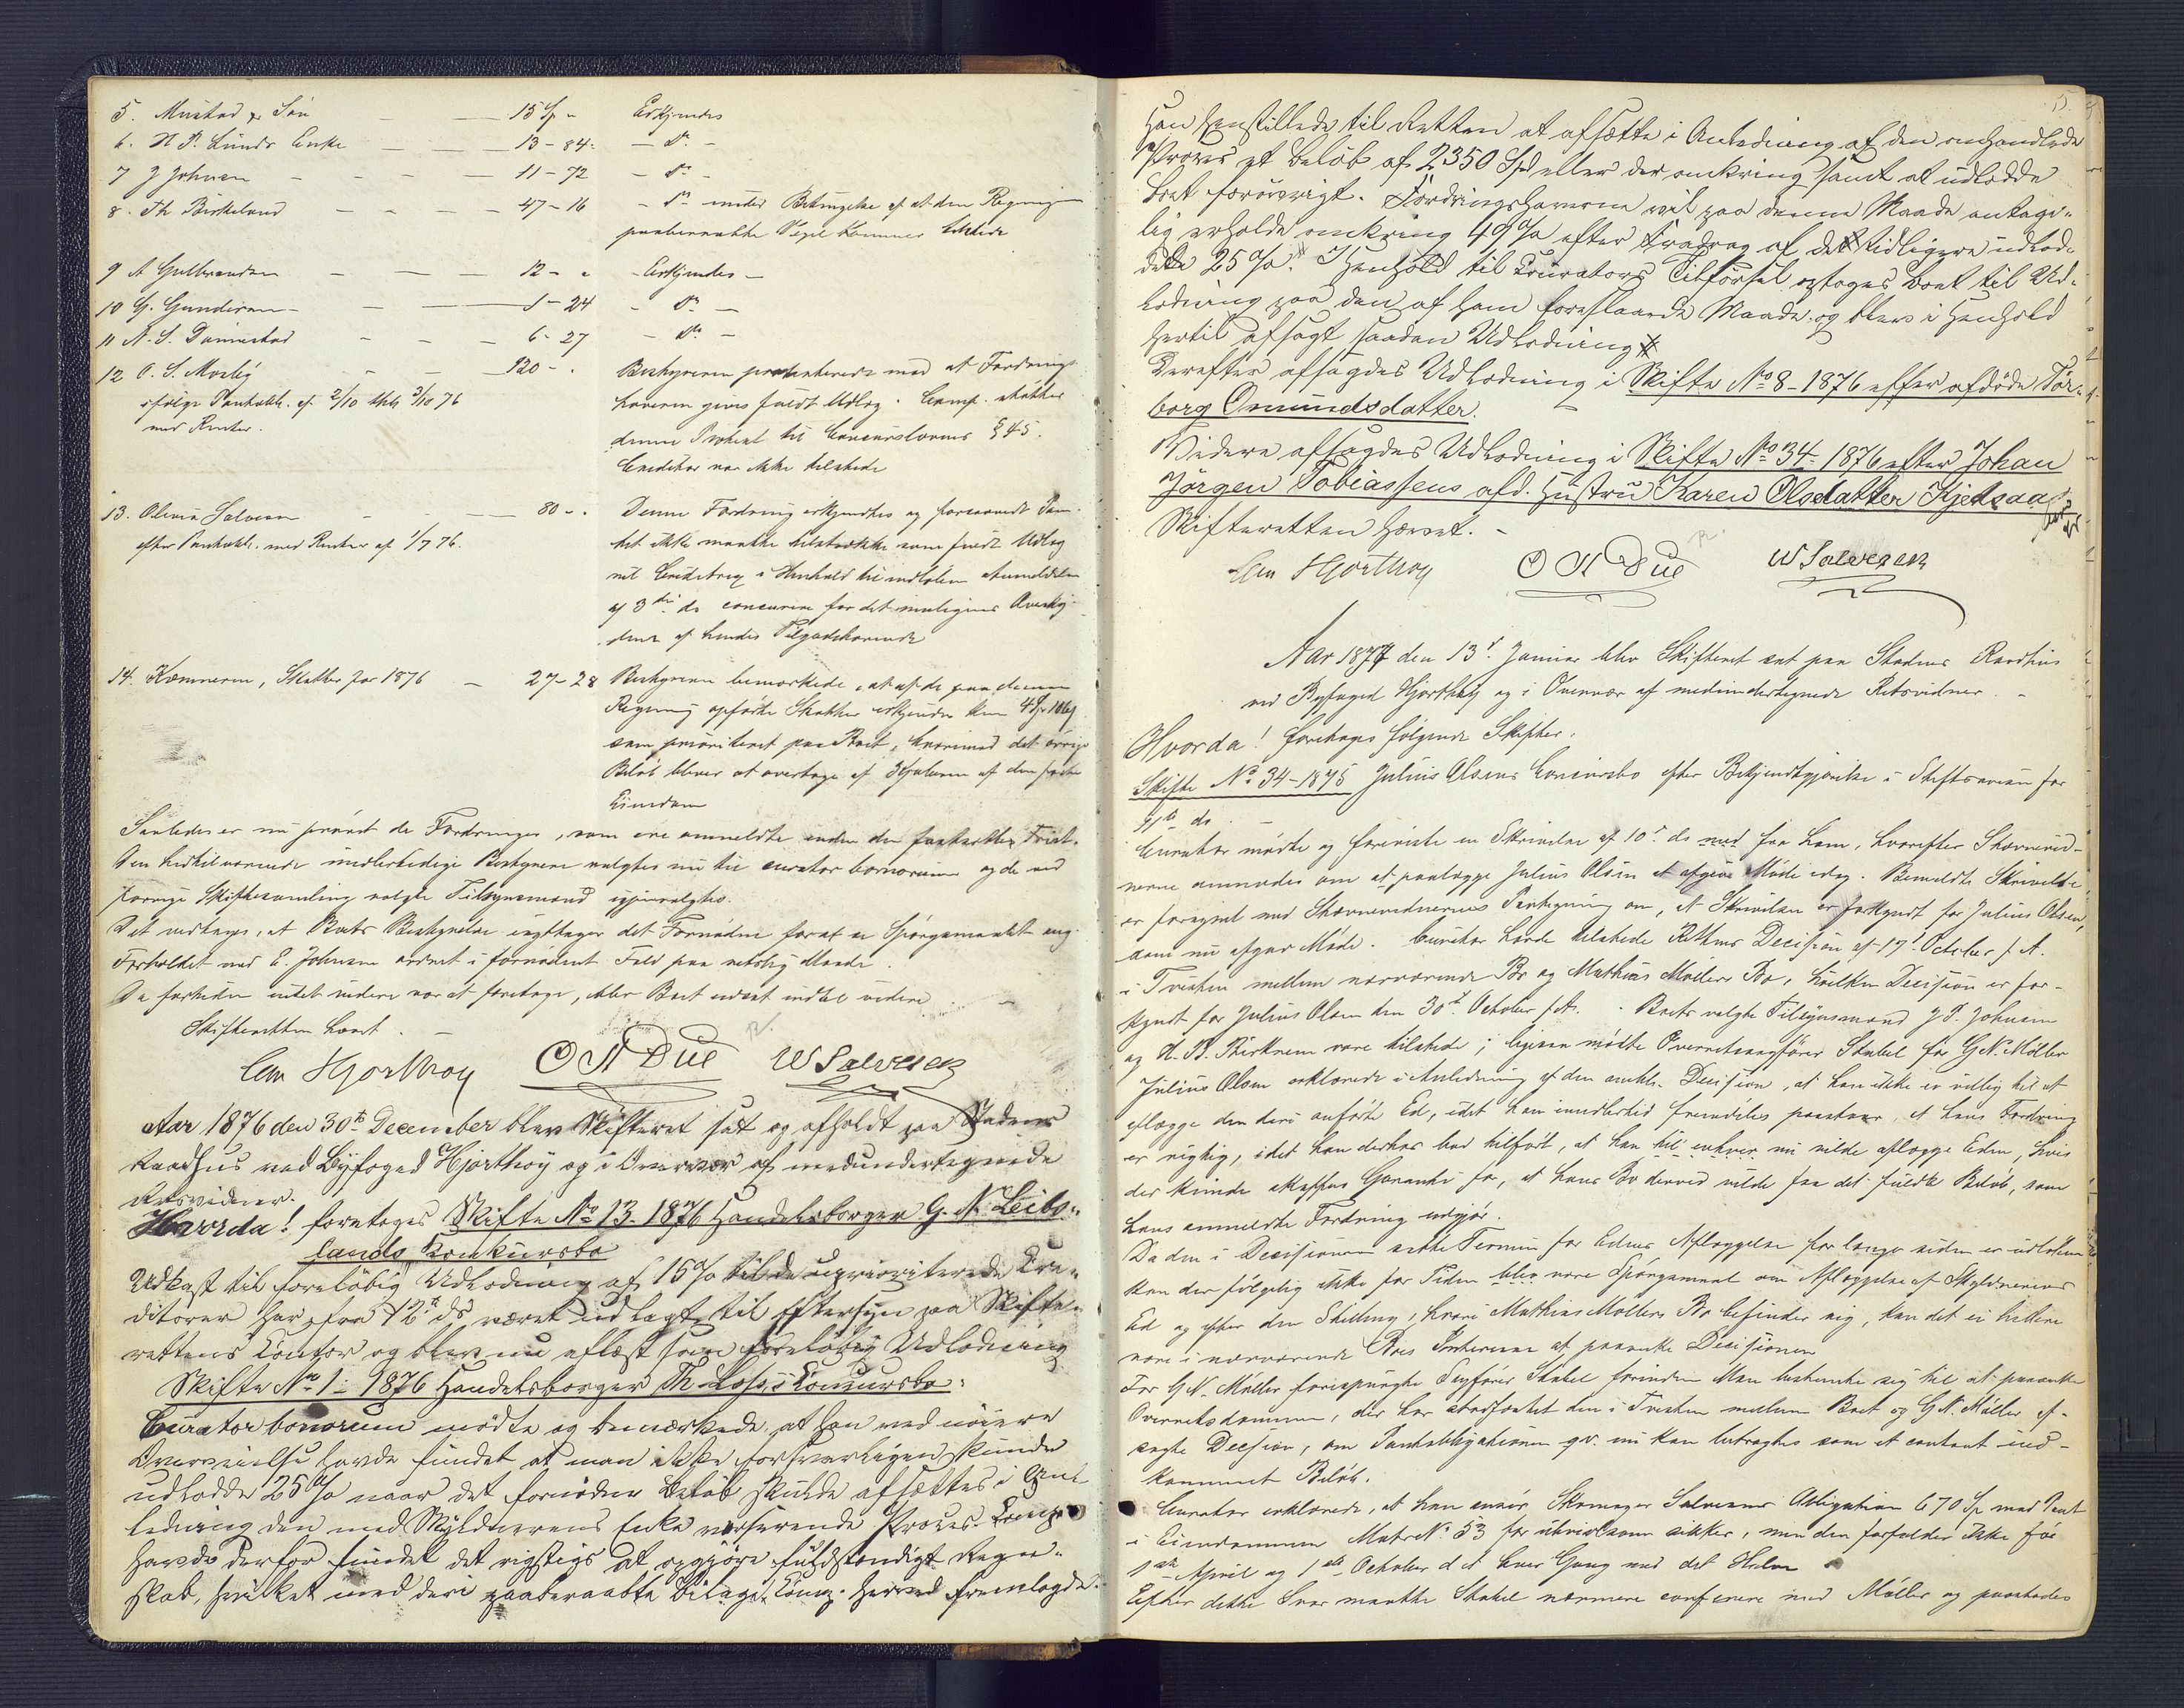 5. Mustad & Søn — 15 Sp „ Erkjendes
6. N. P. Lunds Enke — 13 - 84. — Do —
7 J Johnsen — 11 - 72 — Do —
8. Th Birkeland — 47 - 16 — Do under Betingelse af at den Regningen
paaberaabte Vexel kommer tilstede
9 A Gulbrandsen — 12 - „ — Erkjendes —
10 G. Gundersen — 1 - 24 — Do —
11 A. S. Dannestad — 6 - 27 — Do —
12 O. S. Mosbÿ — 520 - . Bestyreren protesterede mod at Fordrings-
ifølge Pantobl. af 2/10 thgl. 3/10 76 haveren gives fuldt Udlæg. Comp. støtter
med Renter. denne Protest til Concurslovens § 45.
Creditor var ikke tilstede
13. Olivia Salvesen — 80 - . Denne Fordring erkjendtes og forsaavidt Pan-
efter Pantobl. med Renter af 1/7 76. tet ikke maatte tilstrække som fuldt Udlæg
vil Creditrix i Henhold til indkomen Anmeldelse
af 3die ds concurrere for det muligens Oversky-
dende af hendes Tilgodehavende
14. Kæmneren, Skatter for 1876 — 27 - 28 Bestyreren bemærkede, at af de paa denne
Regning opførte Skatter erkjendes kun
som prioriteret paa Boet, hvorimod det øvrige
Beløb bliver at overtage af Kjøberen af den faste
Eiendom
Saaledes er nu prøvet de Fordringer, som ere anmeldte inden den fastsatte Frist.
Den hidtilværende midlertidige Bestyrer valgtes nu til curator bonorum og de ved
forrige Skiftesamling valgte Tilsynsmænd igjenvalgtes.
Det vedtoges, at Boets Bestyrelse iagttager det Fornødne for at se Spørgsmaalet ang.
Forholdet med E. Johnsen ordnet i fornødent Fald paa retslig Maade.
Da forhiden intet videre var at foretage, blev Boet udsat indtil videre
Skifteretten hævet. —
Chr Hjorthøy O N Due W Salvesen
Aar 1876 den 30te December blev Skifteret sat og afholdt paa Stadens
Raadhus ved Byfoged Hjorthøy og i Overvær af medundertegnede
Retsvidner.
Hvorda! foretoges Skifte No 13. 1876 Handelsborger G. N. Leibo-
lands Konkursbo
Udkast til foreløbig Udlodning af 15% til de uprioriterede Kre-
ditorer har fra 12te ds været udlagt til Eftersyn paa Skifte-
rettens Kontor og blev nu oplæst som foreløbig Udlodning
Skifte No 1 - 1876 Handelsborger Th. Loss's Konkursbo:
Curator bonorum mødte og bemærkede, at han ved nøiere
Overveielse havde fundet at man ikke forsvarligen kunde
udlodde 25% naar det fornødne Beløb skulde afsættes i Anl
ledning den med Skyldnerens Enke verserende Proces. Comp.
havde derfor fundet det rigtigst at opgjøre fuldstændigt Regn-
skab, hvilket med deri paaberaabte Bilage Comp. herved fremlagde.
Han henstillede til Retten at afsætte i Anledning af den omhandlede
Proces et Beløb af 2350 Spd eller deromkring samt at udlodde
Boet forøvrigt. Fordringshaverne vil paa denne Maade antage-
lig erholde omkring 49% efter Fradrag af det tidligere udlod-
dede 25%. I Henhold til Kurators Tilførsel optoges Boet til Ud-
lodning paa den af ham foreslaaede Maade og blev i Henhold
hertil afsagt saadan Udlodning
Derefter afsagdes Udlodning i Skifte No 8 - 1876 efter afdøde Tor-
borg Omundsdatter.
Videre afsagdes Udlodning i Skifte No 34 - 1876 efter Johan
Jørgen Tobiassens afd. Hustru Karen Olsdatter Kjetsaa
Skifteretten hævet. —
Chr Hjorthøy O N Due W Salvesen
Aar 1877 den 13d Januar blev Skifteret sat paa Stadens Raadhus
ved Byfoged Hjorthøy og i Overvær af medundertegnede Retsvidner. —
Hvorda! foretoges følgende Skifter.
Skifte No 34 - 1875 Julius Olsens Concursbo efter Bekjendtgjørelse i Stiftsavisen for
11te ds. —
Curator mødte og foreviste en Skrivelse af 10de ds med fra ham, hvorefter Stævnevid-
nerne anmodes om at paalægge Julius Olsen at afgive Møde idag. Bemeldte Skrivelse
er forsynet med Stævnevidnernes Paategning om, at Skrivelsen er forkyndt for Julius Olsen,
som nu afgav Møde. Curator havde tilstede Rettens Decision af 17de October f. A.
i Tvisten mellem nærværende Bo og Mathias Møllers Bo, hvilken Decision er for-
kyndt for Julius Olsen den 30te October f. A. — Boets valgte Tilsynsmænd J. P. Johnsen
og H. B. Birknem vare tilstede; ligesaa mødte Overretssagfører Stabel for G. N. Møller
Julius Olsen erklærede i Anledning af den omhdl. Decision, at han ikke er villig til at
aflægge den deri anførte Ed, idet han imidlertid fremdeles paastaar, at hans Fordring
er rigtig, idet han derhos bad tilført, at han til enhver nu vilde aflægge Eden, hvis
der kunde skaffes Garanti for, at hans Bo derved vilde faa det fulde Beløb, som
hans anmeldte Fordring udgjør.
Da den i Decisionen satte Termin for Edens Aflæggelse for længe siden er udløben
kan der følgelig ikke for Tiden blive være Spørgsmaal om Aflæggelse af Skyldnerens
Ed og efter den Stilling, hvori Mathias Møllers Bo befinder sig, kan det ei heller
være i nærværende Boes Interesse at paaanke Decisionen
For G. N. Møller forespurgte Sagfører Stabel forinden Man bestemte sig til at paaanke
Overretsdommen, der har stadfæstet den i Tvisten mellem Boet og G. N. Møller af-
sagte Decision, om Pantobligationen qv. nu kan betragtes som et contant ind-
kommet Beløb.
Curator erklærede, at han anser Skomager Salvesens Obligation 670 Sp med Pant
i Eiendommen Matr No 53 for utvivlsom sikker, men den forfalder ikke før
1ste April og 1ste October d. A. hver Gang med det Halve
Efter dette Svar maatte Stabel nærmere conferere med Møller og paastodes